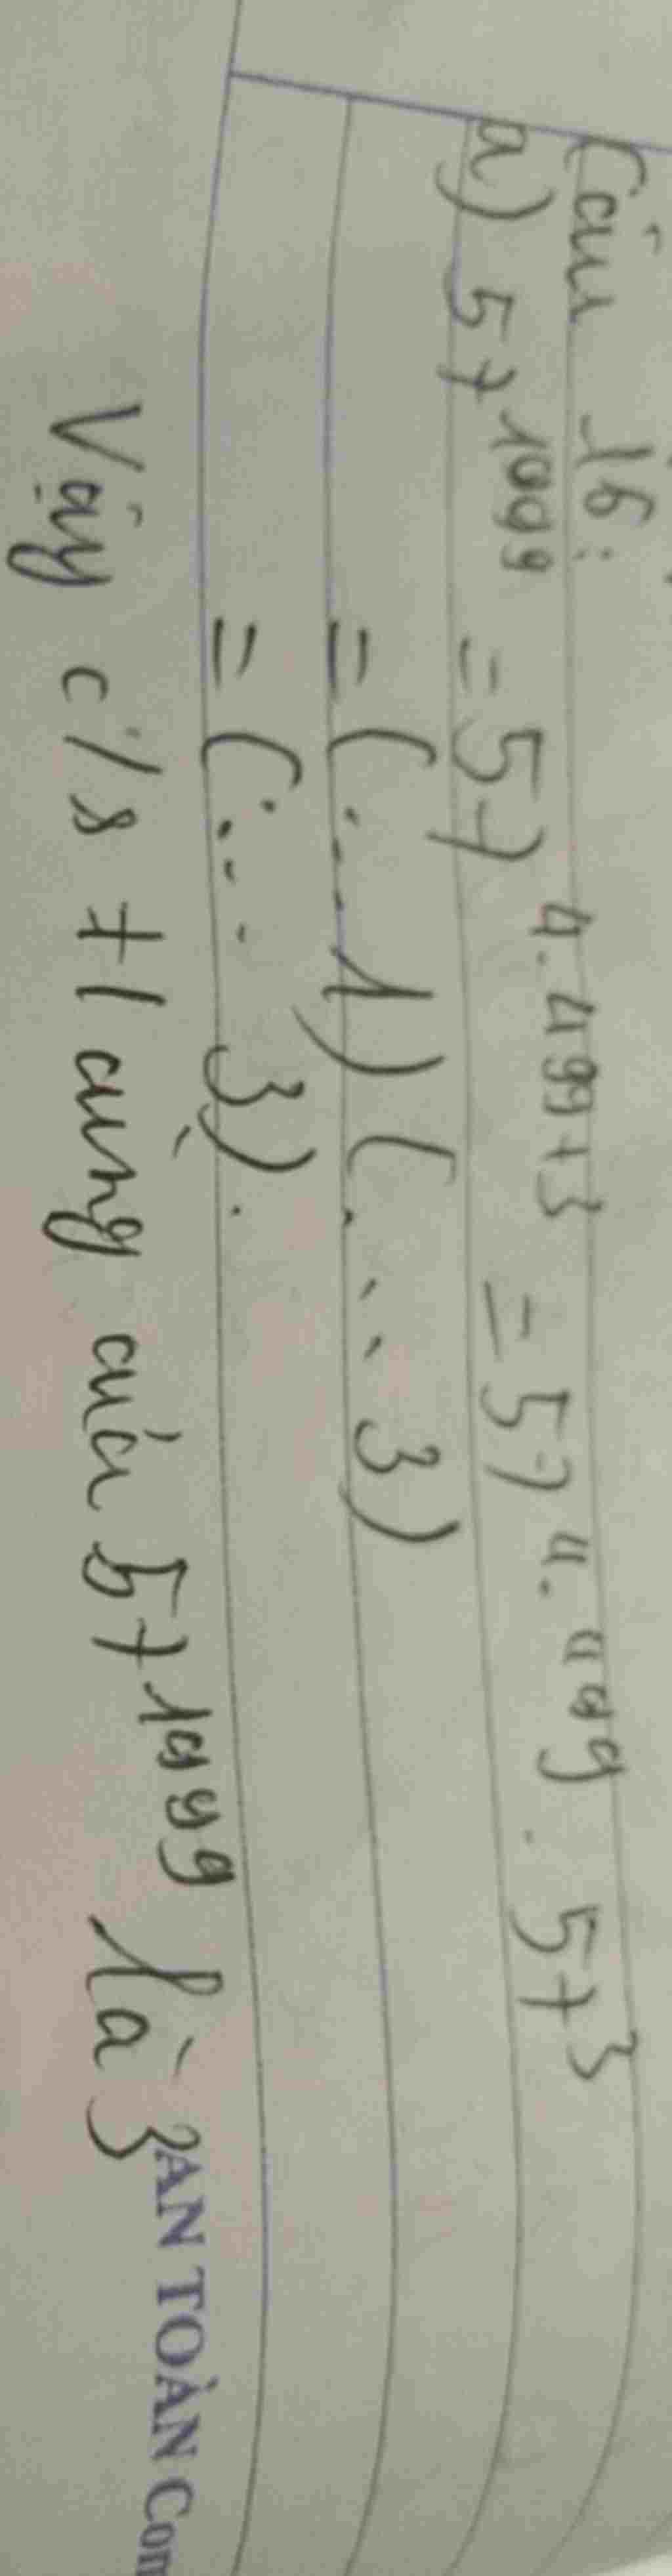 Câu 16:
a) 57^1999 = 57^4.499+3 = 57^4.499 . 57^3
= (...1) (...3)
= (...3).
Vậy c/s tận cùng của 57^1999 là 3
AN TOÀN Com